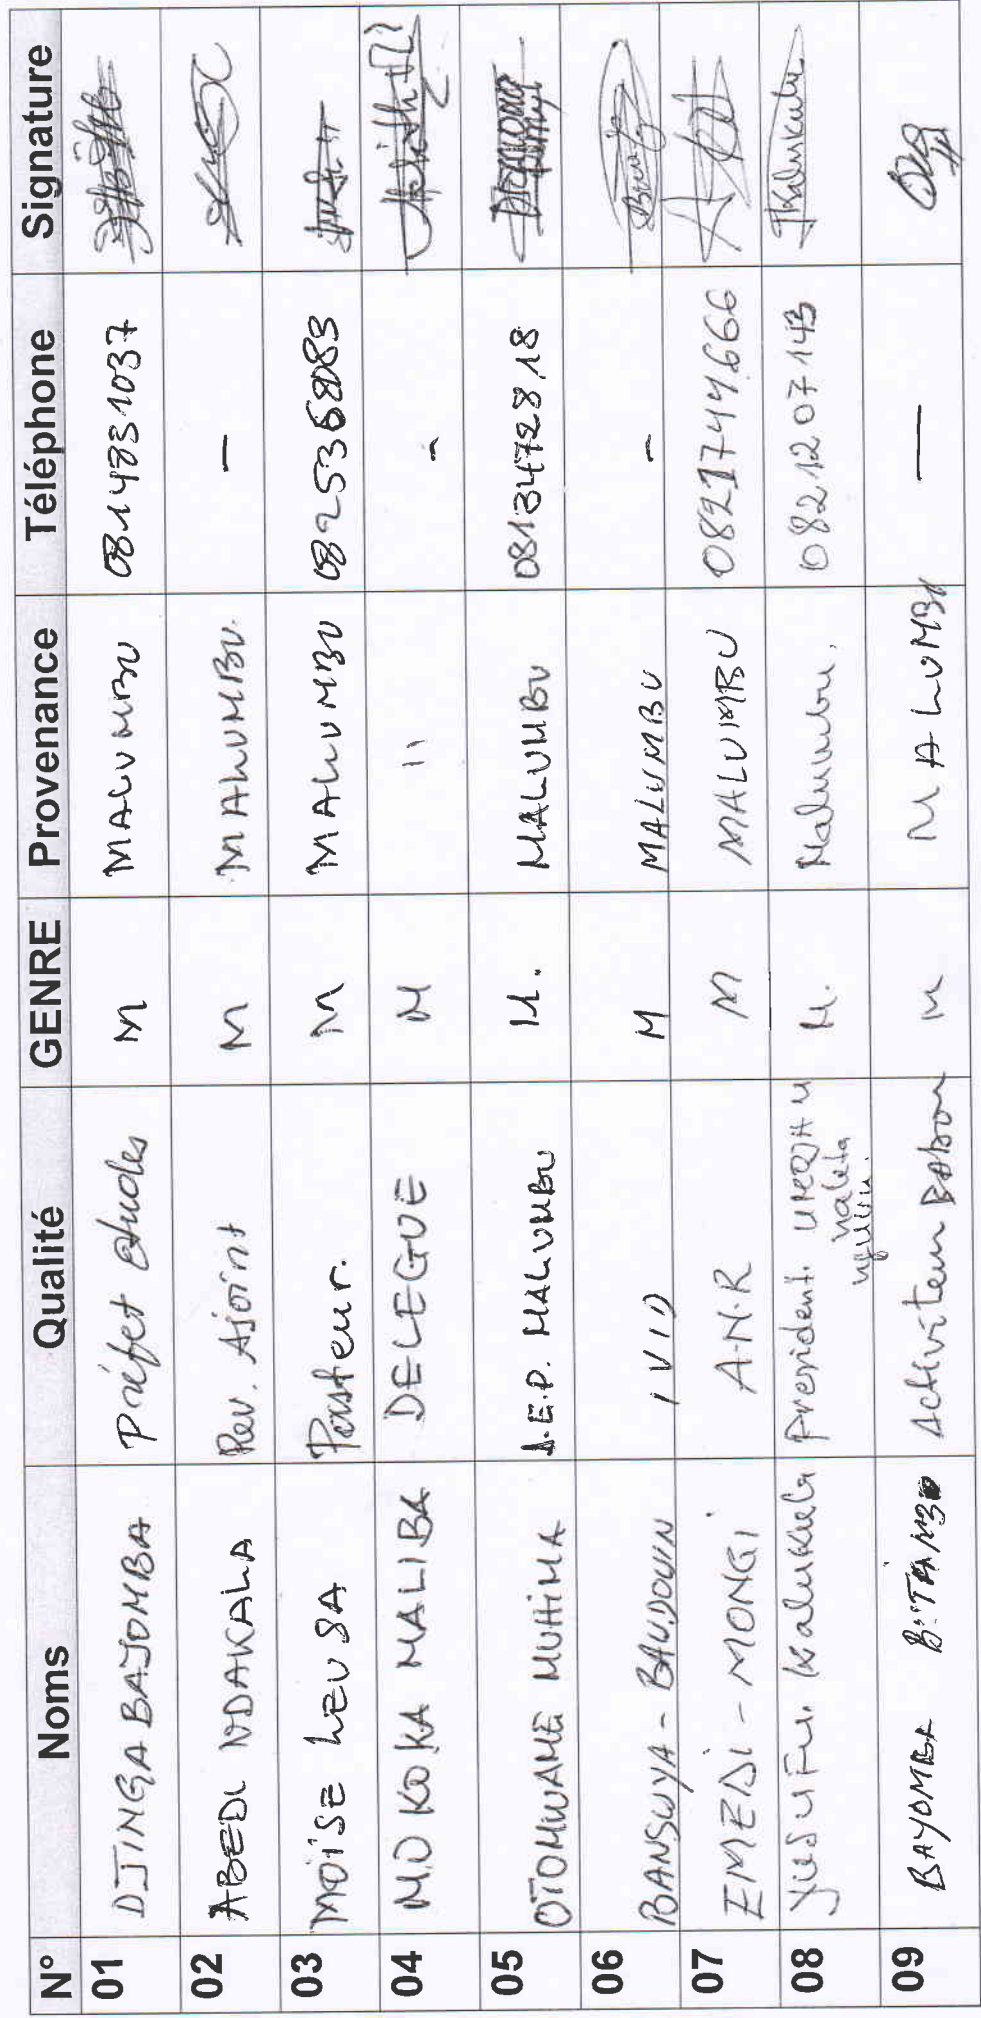 N° Noms Qualité GENRE Provenance Téléphone Signature
01 DJINGA BAJOMBA Préfet études M MALUMBU 0814831037
02 ABEDI NDAKALA Rev. Ajoint M MALUMBU. -
03 MOISE LEUSA Pasteur. M MALUMBU 0825368083
04 MOKOKA MALIBA DELEGUE M " -
05 OTOMWAME MUHIMA A.E.P. MALUMBU M. MALUMBU 0813472818
06 BANSUYA - BAUDOUIN M MALUMBU -
07 EMEDI - MONGI A.N.R M MALUMBU 0821744666
08 Yusufu. Kalukula President. M. Malumbu. 0821207143 Kalukula
09 BAYOMBA M MALUMBU —